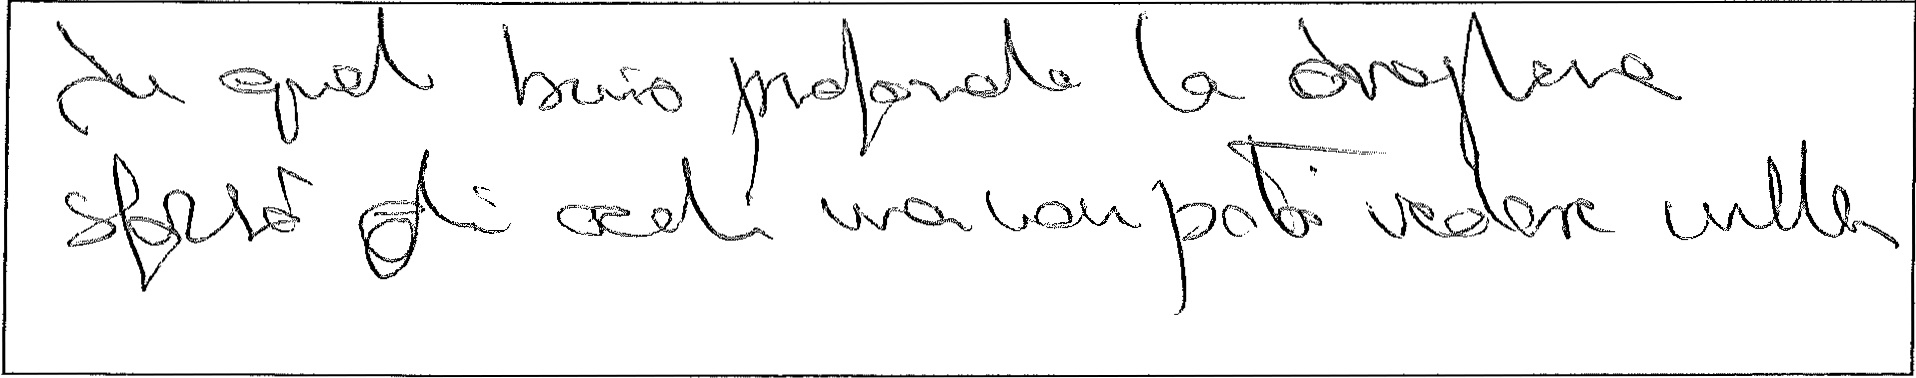 In quel buio profondo la dragliera
sforzò gli occhi ma non poté vedere nulla